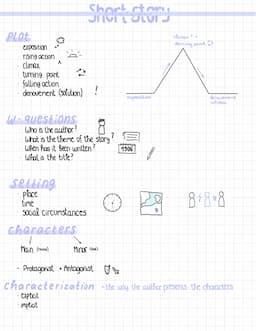 Short story
PLOT
exposition
rising action
climax
turning point
falling action
denouement (solution)
climax +
turning point
exposition
denouement
W-questions
Who is the author?
What is the theme of the story?
When has it been written?
What is the title?
Setting
place
time
social circumstances
characters
Main (round)
Minor (flat)
Protagonist + Antagonist
characterization - the way the author presents the characters
explicit
implicit